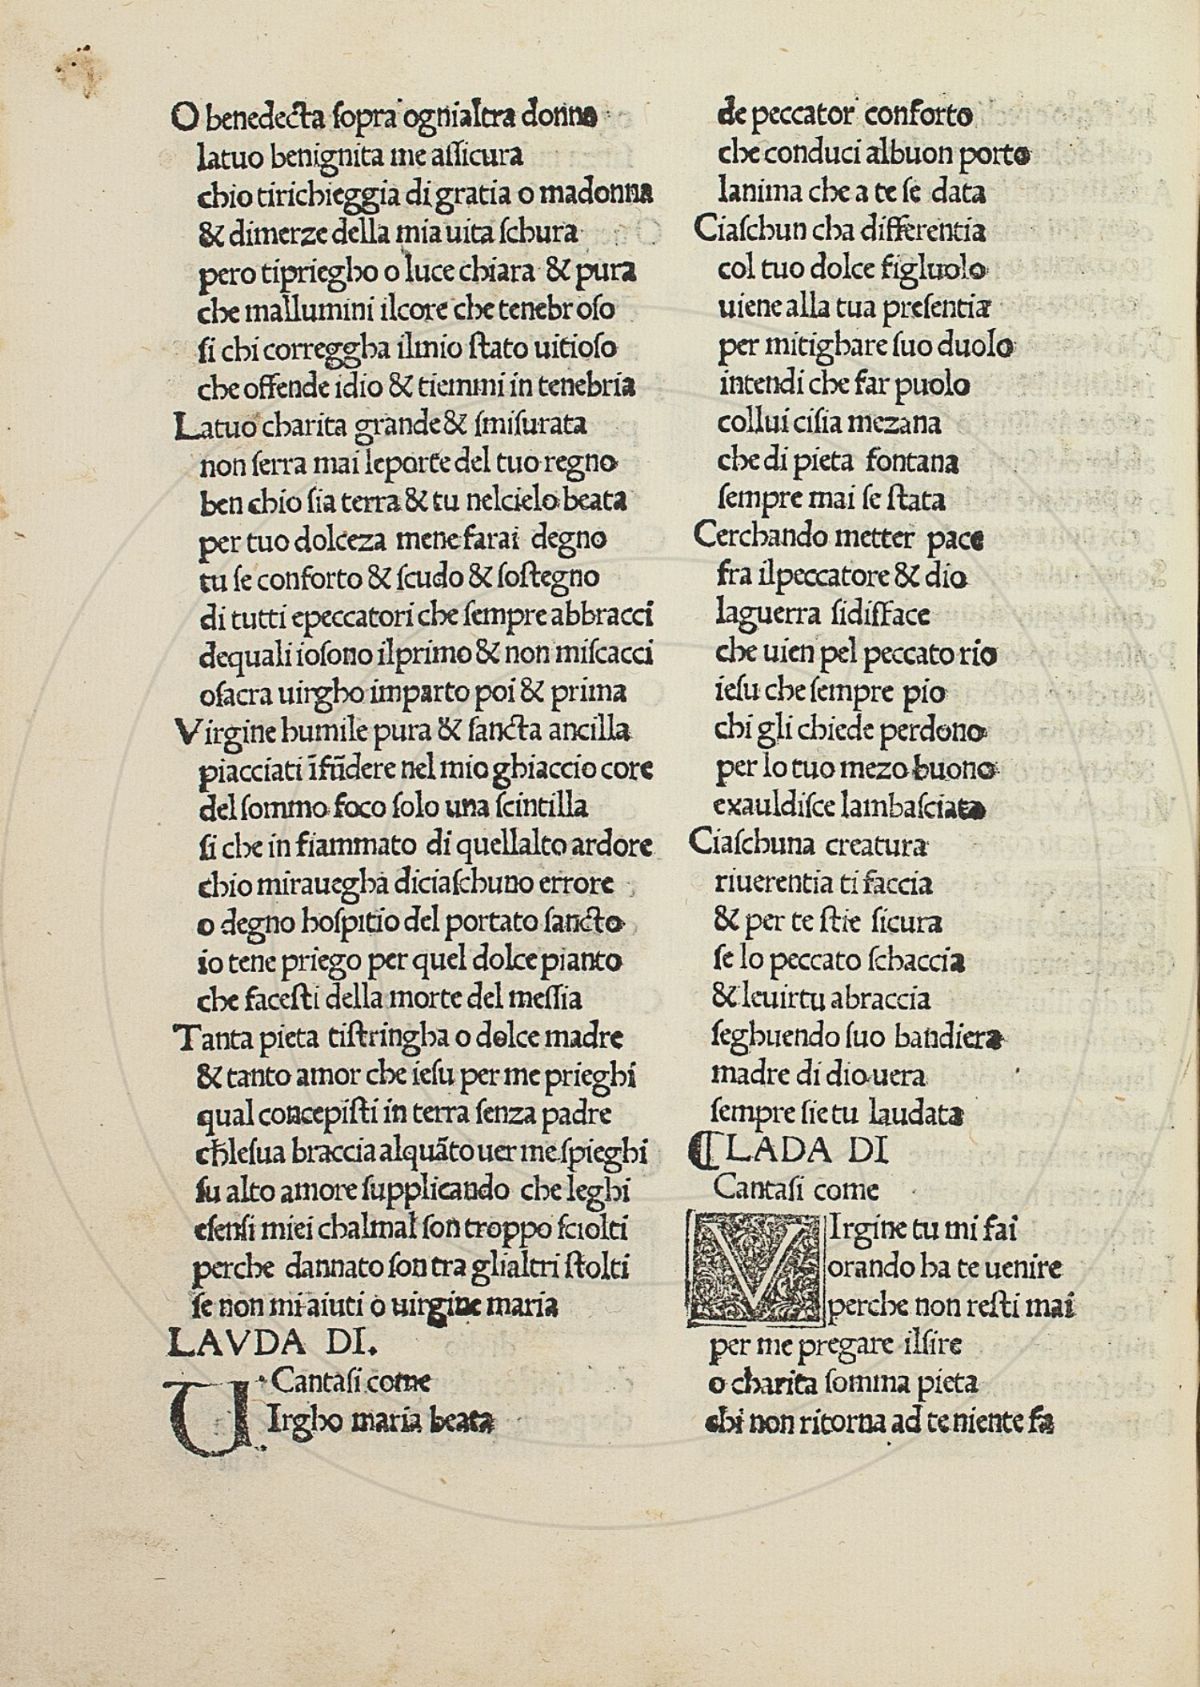 O benedecta ſopra ognialtra donna
latuo benignita me aſſicura
chio tirichieggia di gratia o madonna
& dimerze della mia uita ſchura
pero tipriegho o luce chiara & pura
che mallumini ilcore che tenebroſo
ſi chi correggha ilmio ſtato uitioſo
che offende idio & tiemmi in tenebria
Latuo charita grande & ſmiſurata
non ſerra mai leporte del tuo regno
ben chio ſia terra & tu nelcielo beata
per tuo dolceza mene farai degno
tu ſe conforto & ſcudo & ſoſtegno
di tutti epeccatori che ſempre abbracci
dequali ioſono ilprimo & non miſcacci
oſacra uirgho imparto poi & prima
Virgine humile pura & ſancta ancilla
piacciati īfūdere nel mio ghiaccio core
del ſommo foco ſolo una ſcintilla
ſi che in fiammato di quellalto ardore
chio mirauegha diciaſchuno errore
o degno hoſpitio del portato ſancto
io tene priego per quel dolce pianto
che faceſti della morte del meſſia
Tanta pieta tiſtringha o dolce madre
& tanto amor che ieſu per me prieghi
qual concepiſti in terra ſenza padre
cħleſua braccia alquāto uer me ſpieghi
ſu alto amore ſupplicando che leghi
eſenſi miei chalmal ſon troppo ſciolti
perche dannato ſon tra glialtri ſtolti
ſe non mi aiuti o uirgine maria
LAVDA DI.
Cantaſi come
VIrgho maria beata
de peccator conforto
che conduci albuon porto
lanima che a te ſe data
Ciaſchun cha differentia
col tuo dolce figluolo
uiene alla tua preſentia
per mitighare ſuo duolo
intendi che far puolo
collui ciſia mezana
che di pieta fontana
ſempre mai ſe ſtata
Cerchando metter pace
fra ilpeccatore & dio
laguerra ſidiſface
che uien pel peccato rio
ieſu che ſempre pio
chi gli chiede perdono
per lo tuo mezo buono
exauldiſce lambaſciata
Ciaſchuna creatura
riuerentia ti faccia
& per te ſtie ſicura
ſe lo peccato ſchaccia
& leuirtu abraccia
ſeghuendo ſuo bandiera
madre di dio uera
ſempre ſie tu laudata
⸿LADA DI
Cantaſi come
VIrgine tu mi fai
orando ha te uenire
perche non reſti mai
per me pregare ilſire
o charita ſomma pieta
chi non ritorna ad te niente fa